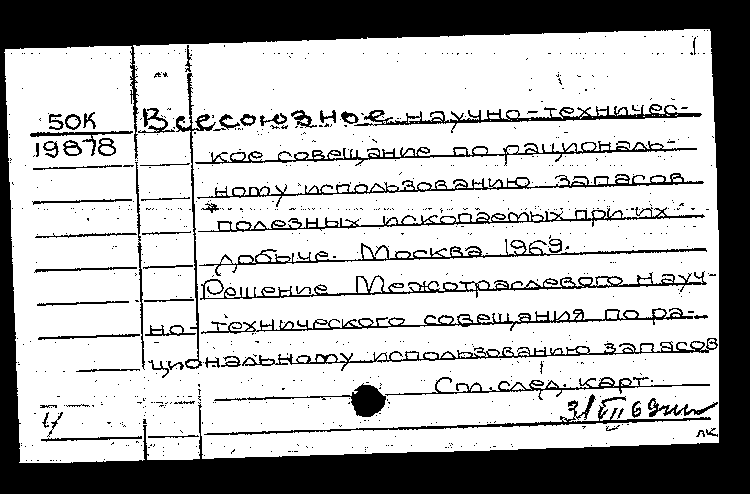 50К Всесоюзное научно-техничес-
19878 кое совещание по рациональ-
ному использованию запасов
полезных ископаемых при их
добыче. Москва. 1969.
Решение Межотраслевого науч-
но-технического совещания по ра-
циональному использованию запасов
См. след. карт.
4
лк